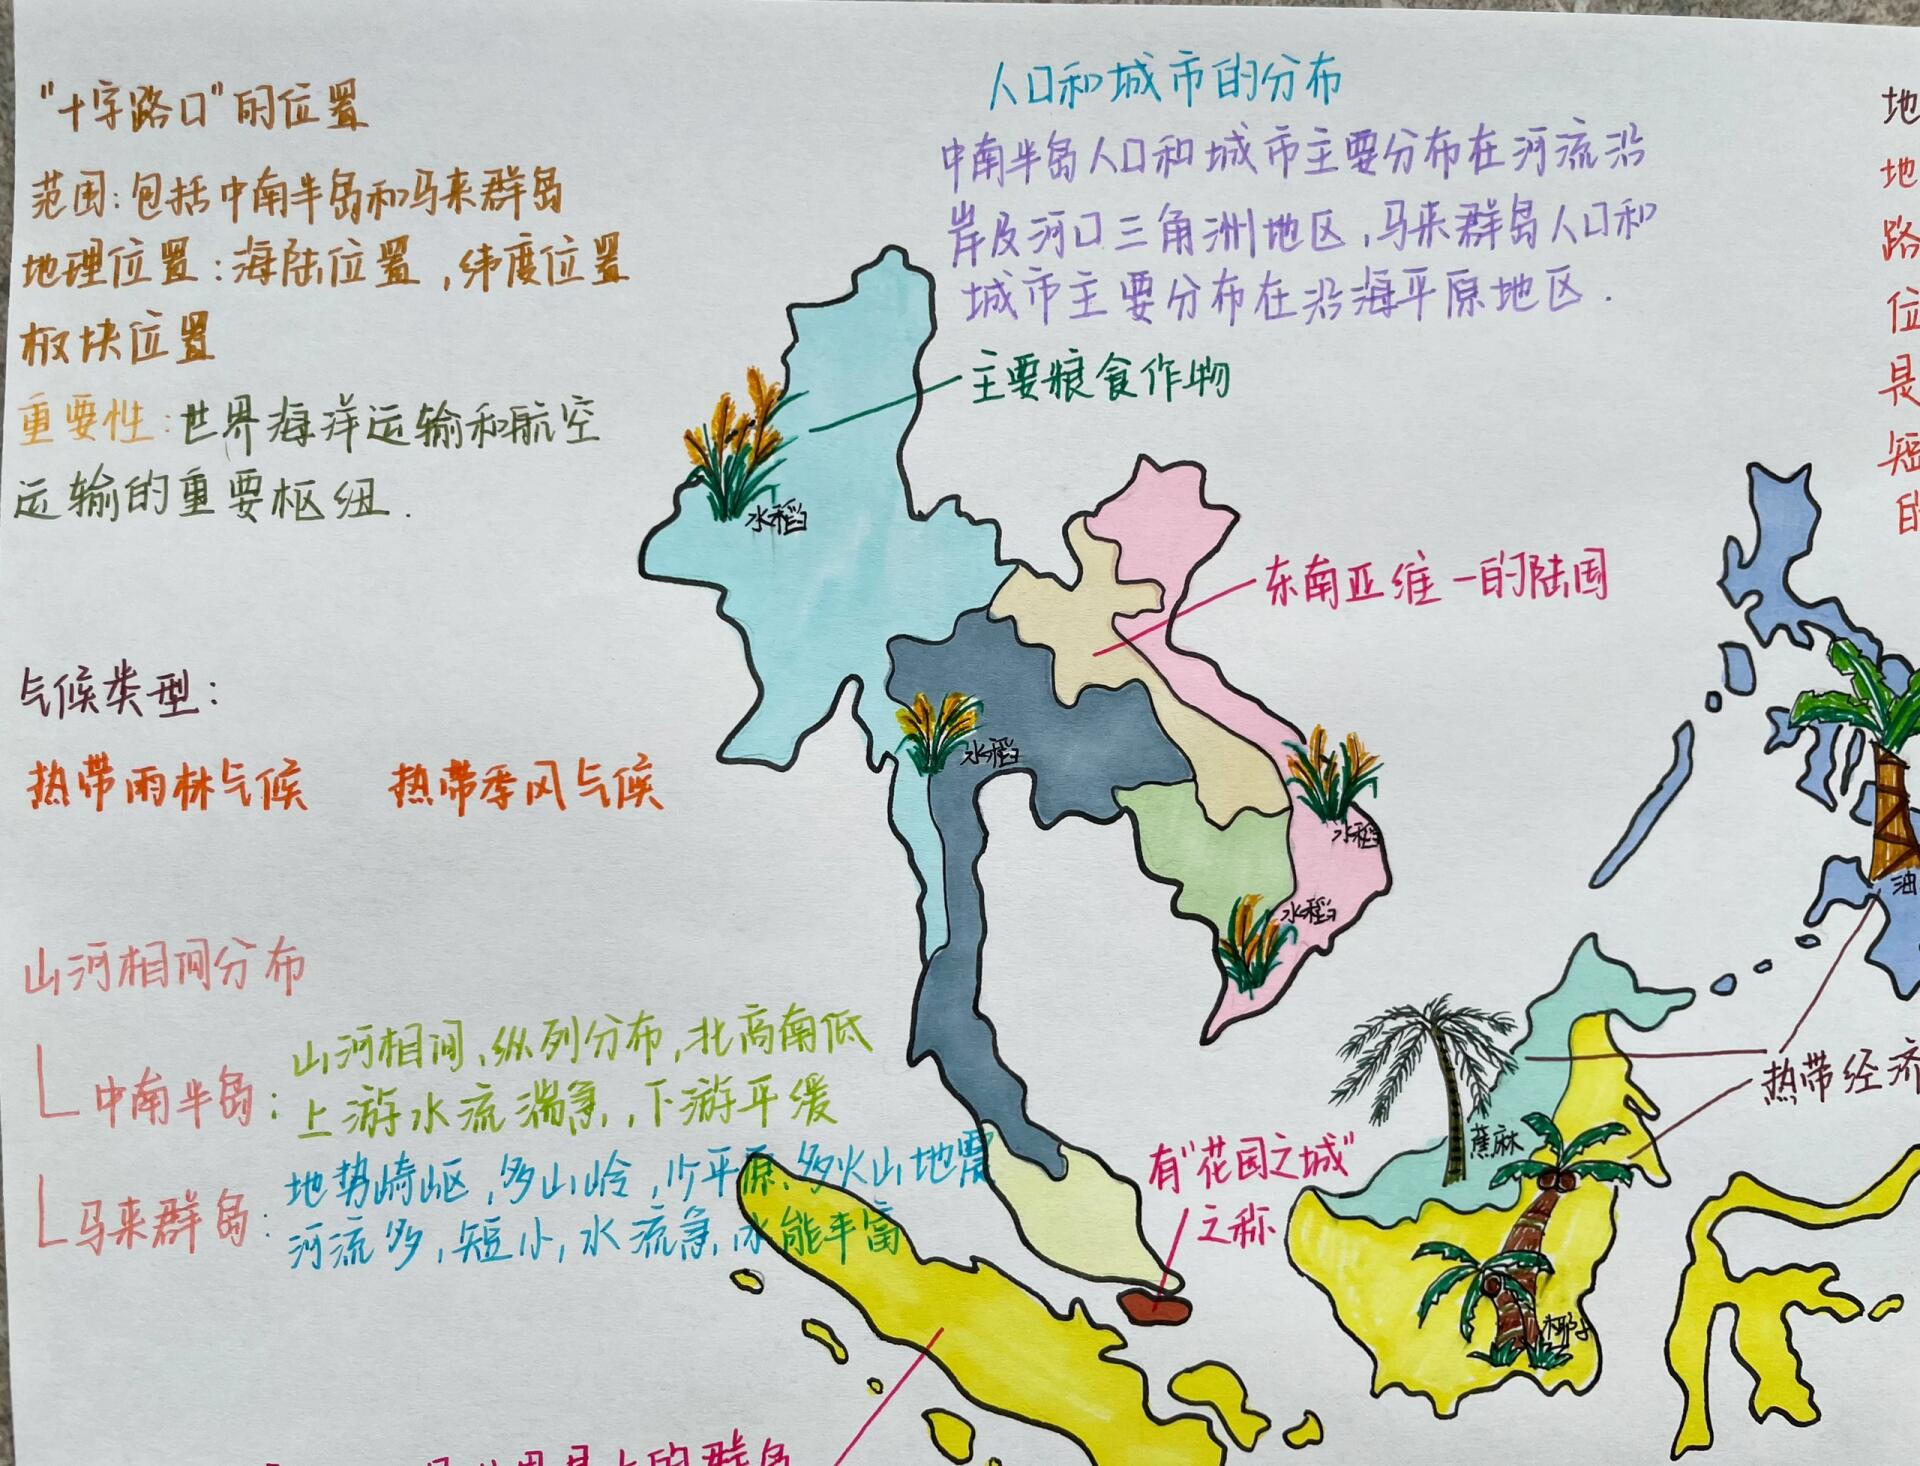 "十字路口"的位置
范围：包括中南半岛和马来群岛
地理位置：海陆位置，纬度位置
板块位置
重要性：世界海洋运输和航空
运输的重要枢纽．
气候类型：
热带雨林气候 热带季风气候
山河相间分布
中南半岛：山河相间、纵列分布，北高南低
上游水流湍急，下游平缓
马来群岛：地势崎岖，多山岭，少平原、多火山地震
河流多，短小，水流急，水能丰富
人口和城市的分布
中南半岛人口和城市主要分布在河流沿
岸及河口三角洲地区，马来群岛人口和
城市主要分布在沿海平原地区．
主要粮食作物
水稻
东南亚唯一的陆国
水稻
水稻
水稻
有"花园之城"
之称
蕉麻
椰子
热带经济
油
地
地
路
位
是
短
的